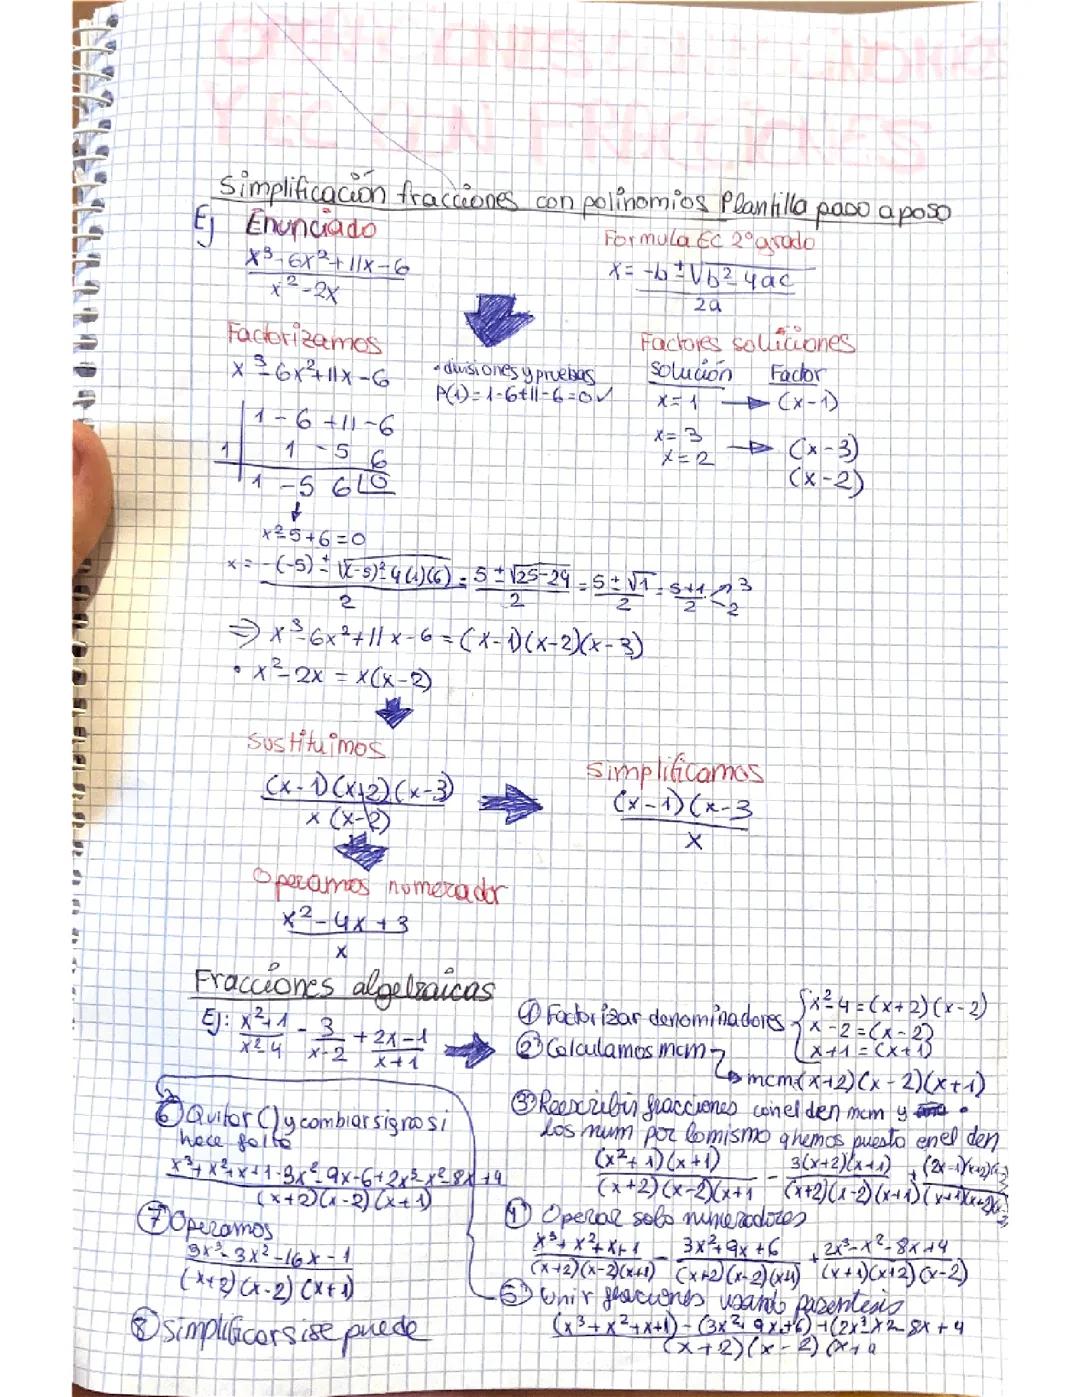 Simplificación fracciones con polinomios Plantilla paso a paso
Ej Enunciado
x³-6x²+11x-6
x²-2x
Formula Ec 2º grado
x= -b±√b²-4ac
2a
Factorizamos
x³-6x²+11x-6
• divisiones y pruebas
P(1)=1-6+11-6=0✓
Factores soluciones
Solución Factor
x=1 → (x-1)
x=3 → (x-3)
x=2 (x-2)
1 -6 +11 -6
1 1 -5 6
1 -5 6 0
↓
x²-5+6=0
x = -(-5)±√(-5)²-4(1)(6) = 5±√25-24 = 5±√1 = 5±1 3
2 2 2 2 2
⇒ x³-6x²+11x-6=(x-1)(x-2)(x-3)
• x²-2x = x(x-2)
Sustituimos
(x-1)(x-2)(x-3)
x(x-2)
Simplificamos
(x-1)(x-3
x
Operamos numerador
x²-4x+3
x
Fracciones algebraicas
Ej: x²+1 - 3 + 2x-1
x²-4 x-2 x+1
① Factorizar denominadores { x²-4=(x+2)(x-2)
x-2=(x-2)
x+1=(x+1)
② Calculamos mcm
mcm:(x+2)(x-2)(x+1)
③ Reescribir fracciones con el den mcm y •
los num por lo mismo q hemos puesto en el den
(x²+1)(x+1) - 3(x+2)(x+1) + (2x-1)(x+2)(x-2)
(x+2)(x-2)(x+1 (x+2)(x-2)(x+1) (x+1)(x+2)(x-2)
④ Operar solo numeradores
x³+x²+x+1 - 3x²+9x+6 + 2x³-x²-8x+4
(x+2)(x-2)(x+1) (x+2)(x-2)(x+1) (x+1)(x+2)(x-2)
⑤ Unir fracciones usando parentesis
(x³+x²+x+1)-(3x²+9x+6)+(2x³-x²-8x+4
(x+2)(x-2)(x+1
⑥ Quitar () y cambiar signo si
hace falta
x³+x²+x+1-3x²-9x-6+2x³-x²-8x+4
(x+2)(x-2)(x+1)
⑦ Operamos
3x³-3x²-16x-1
(x+2)(x-2)(x+1)
⑧ Simplificar si se puede